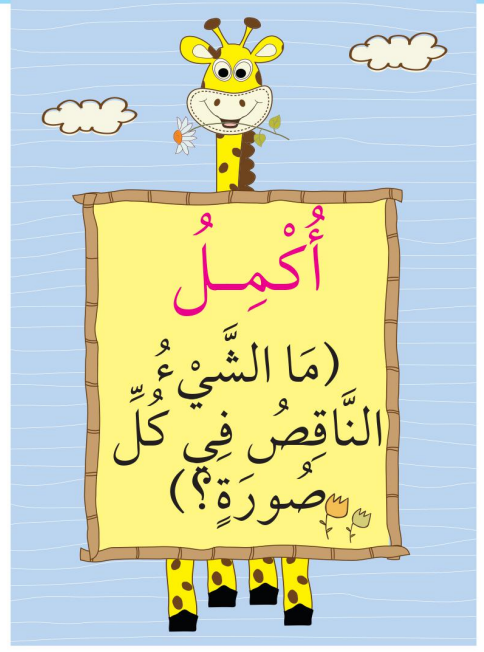 أُكْمِـلُ
(مَا الشَّيْءُ
النَّاقِصُ فِي كُلِّ
صُورَةٍ؟)